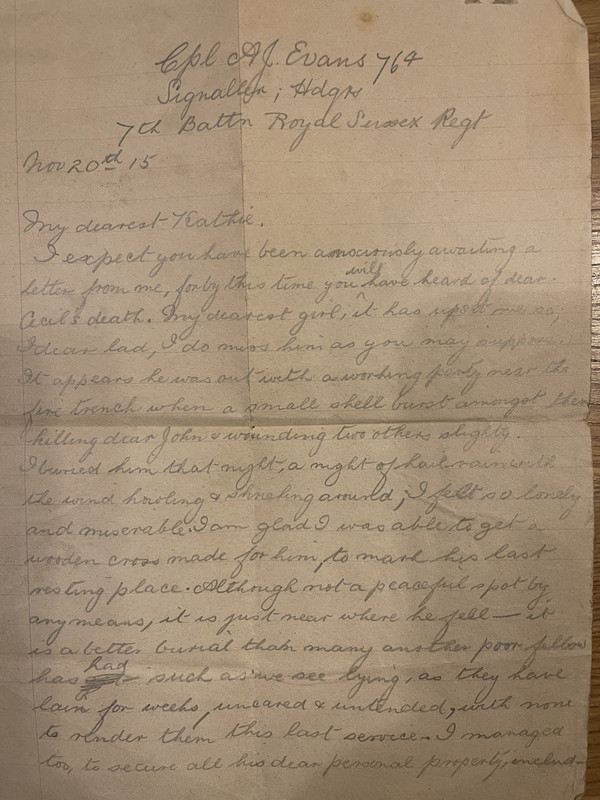 Cpl A.J. Evans 764
Signaller; Hdqrs
7th Battn Royal Sussex Regt
Nov 20th 15
My dearest Kathie.
I expect you have been anxiously awaiting a
letter from me, for by this time you will have heard of dear
Cecil's death. My dearest girl, it has upset me so;
dear lad, I do miss him as you may suppose.
It appears he was out with a working party near the
fire trench when a small shell burst amongst them
killing dear John & wounding two others slightly.
I buried him that night, a night of hail rain with
the wind howling & shrieking around; I felt so lonely
and miserable. I am glad I was able to get a
wooden cross made for him, to mark his last
resting place. Although not a peaceful spot by
any means, it is just near where he fell — it
is a better burial than many another poor fellow
has had such as we see lying, as they have
lain for weeks, uncared & untended, with none
to render them this last service. I managed
too, to secure all his dear personal property, includ-